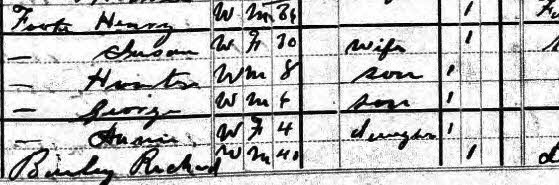 Foote Henry W M 36 1
— Susan W F 30 wife 1
— W M 8 son 1
— George W M 6 son 1
— Annie W F 4 Daughter 1
Richard W M 40 1